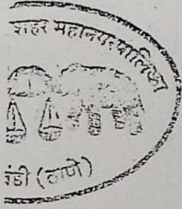 शहर महानगरपालिका
(ठाणे)